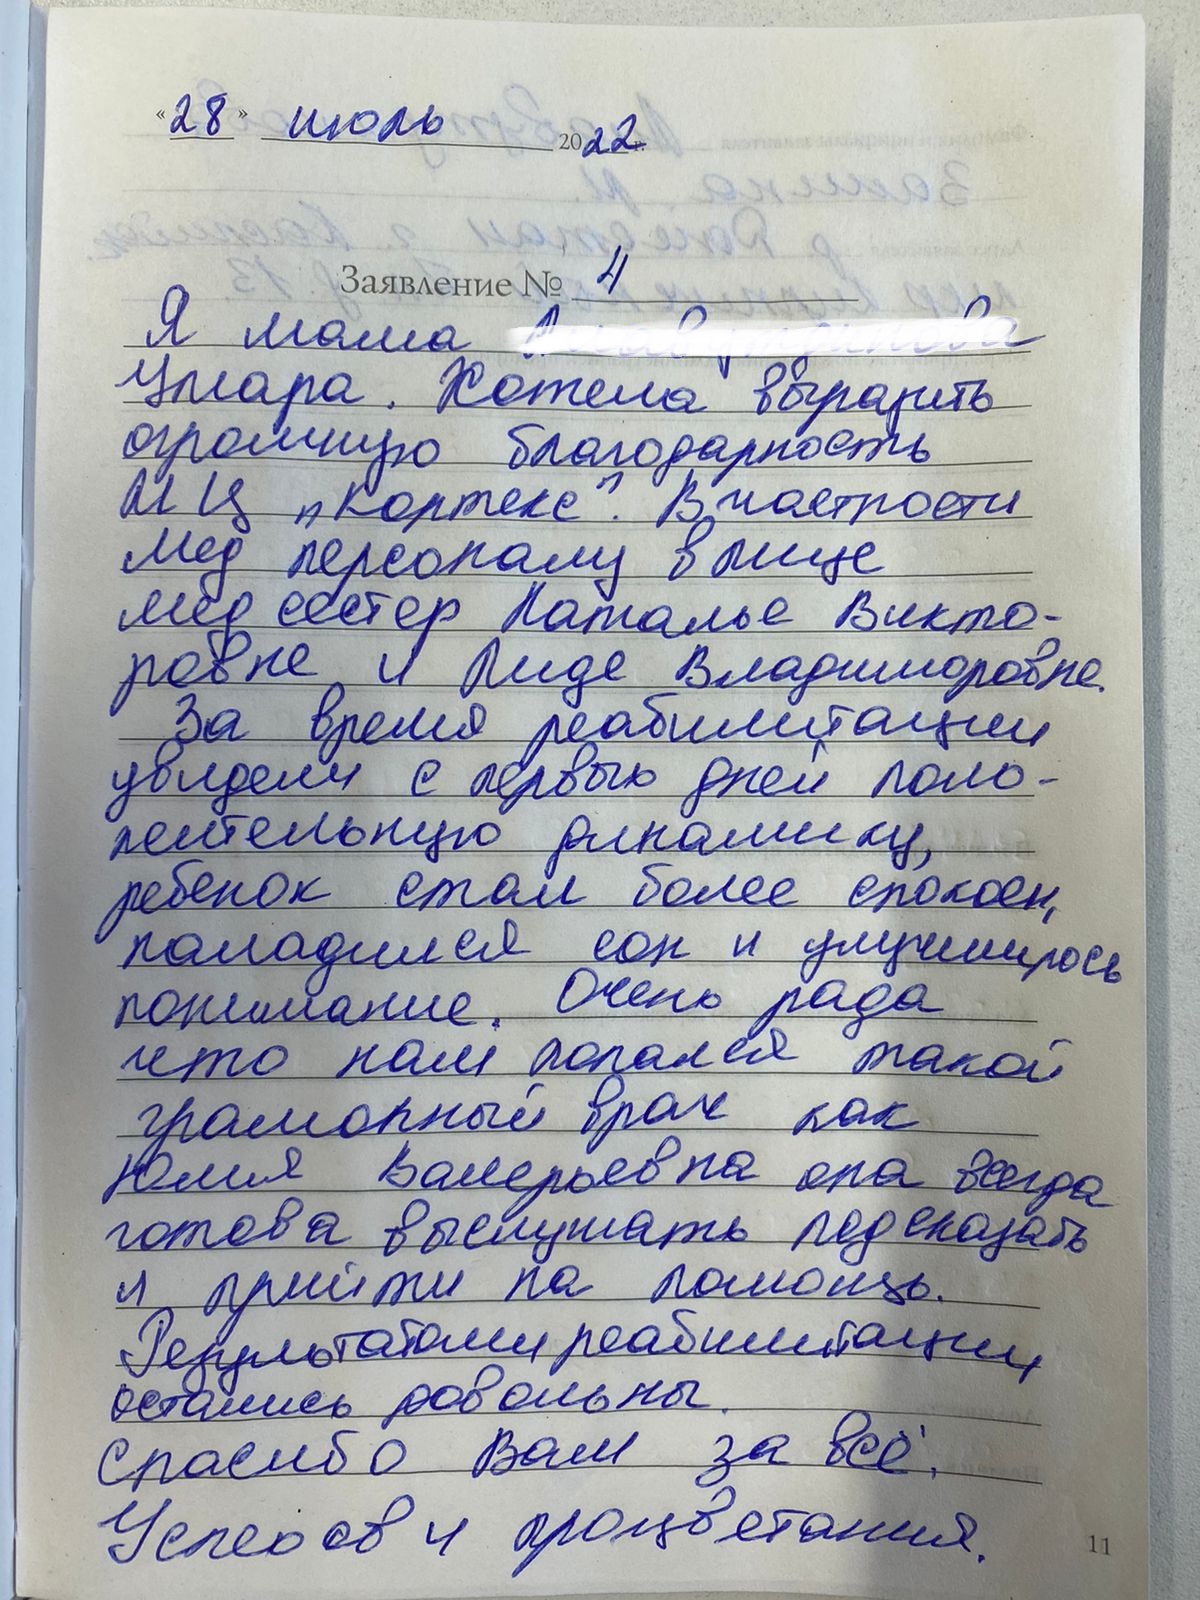 «28» июль 2022 г.
Заявление № 4
Я мама
Умара. Хотела выразить
огромную благодарность
МЦ „Кортекс". В частности
мед персоналу в лице
мед сестер Наталье Викто-
ровне и Лиде Владимировне.
За время реабилитации
увидели с первых дней поло-
жительную динамику,
ребенок стал более спокоен,
наладился сон и улучшилось
понимание. Очень рада
что нам попался такой
грамотный врач как
Юлия Валерьевна она всегда
готова выслушать подсказать
и прийти на помощь.
Результатами реабилитации
остались довольны.
Спасибо Вам за всё.
Успехов и процветания.
11